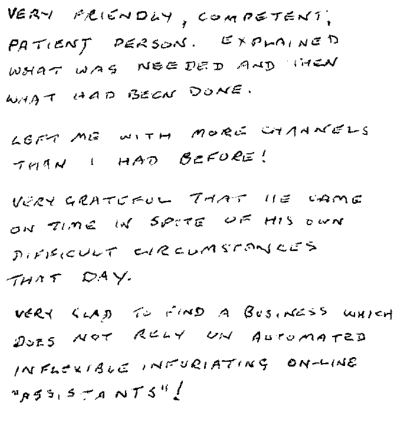 VERY FRIENDLY, COMPETENT,
PATIENT PERSON. EXPLAINED
WHAT WAS NEEDED AND THEN
WHAT HAD BEEN DONE.
LEFT ME WITH MORE CHANNELS
THAN I HAD BEFORE!
VERY GRATEFUL THAT HE CAME
ON TIME IN SPITE OF HIS OWN
DIFFICULT CIRCUMSTANCES
THAT DAY.
VERY GLAD TO FIND A BUSINESS WHICH
DOES NOT RELY ON AUTOMATED
INFLEXIBLE INFURIATING ON-LINE
"ASSISTANTS"!